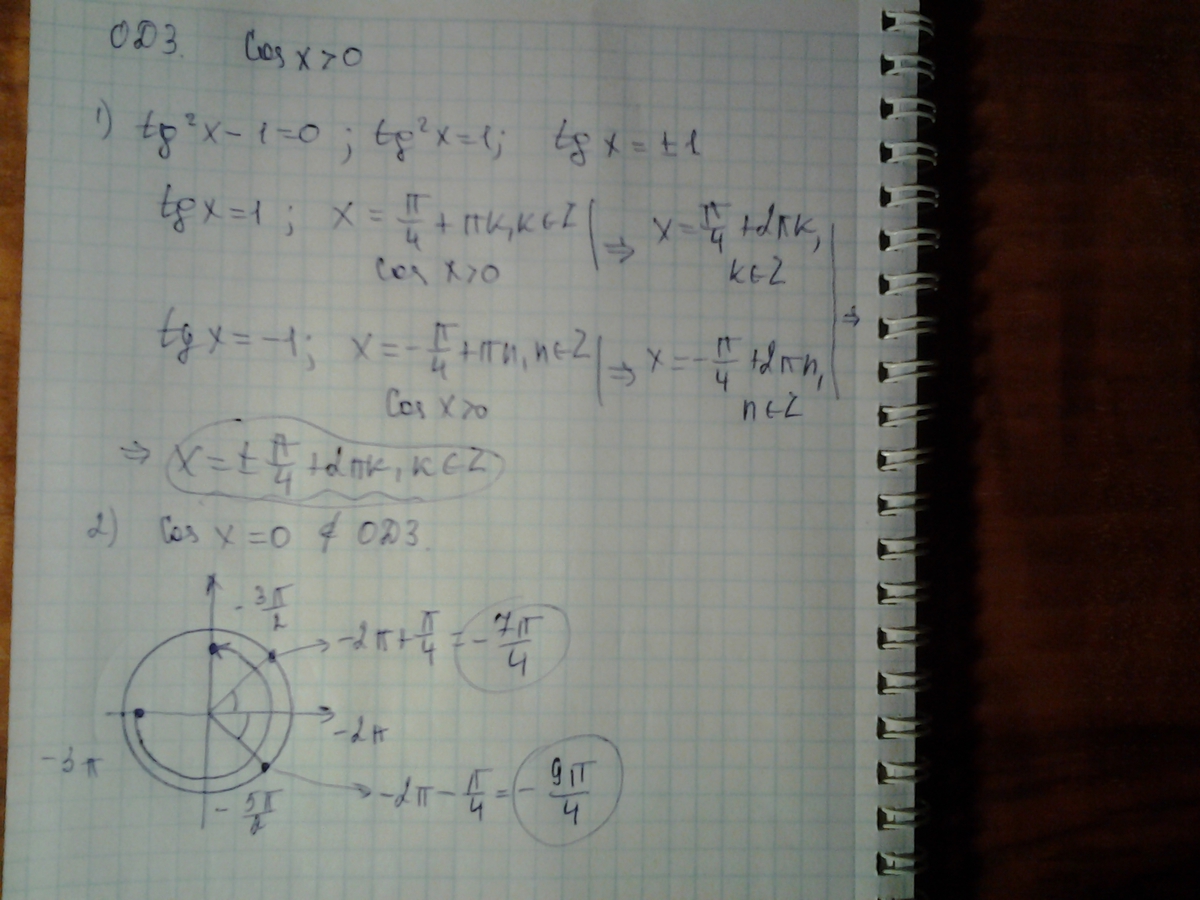 ОДЗ. Cos x>0
1) tg²x-1=0; tg²x=1; tg x=±1
tg x=1; x=π/4+πk, k∈Z | ⇒ x=π/4+2πk,
Cos x>0 k∈Z
⇒
tg x=-1; x=-π/4+πn, n∈Z | ⇒ x=-π/4+2πn,
Cos x>0 n∈Z
⇒ x=±π/4+2πk, k∈Z
2) Cos x=0 ∉ ОДЗ.
-3π/2
-2π+π/4=-7π/4
-2π
-3π
-2π-π/4=-9π/4
-5π/2